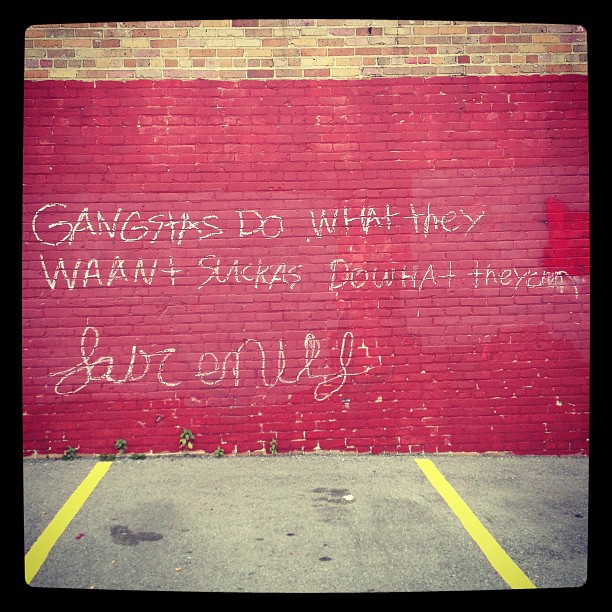 GANGStAS DO WHAt they
WAANt SUCKAS DO WHAt they can
only